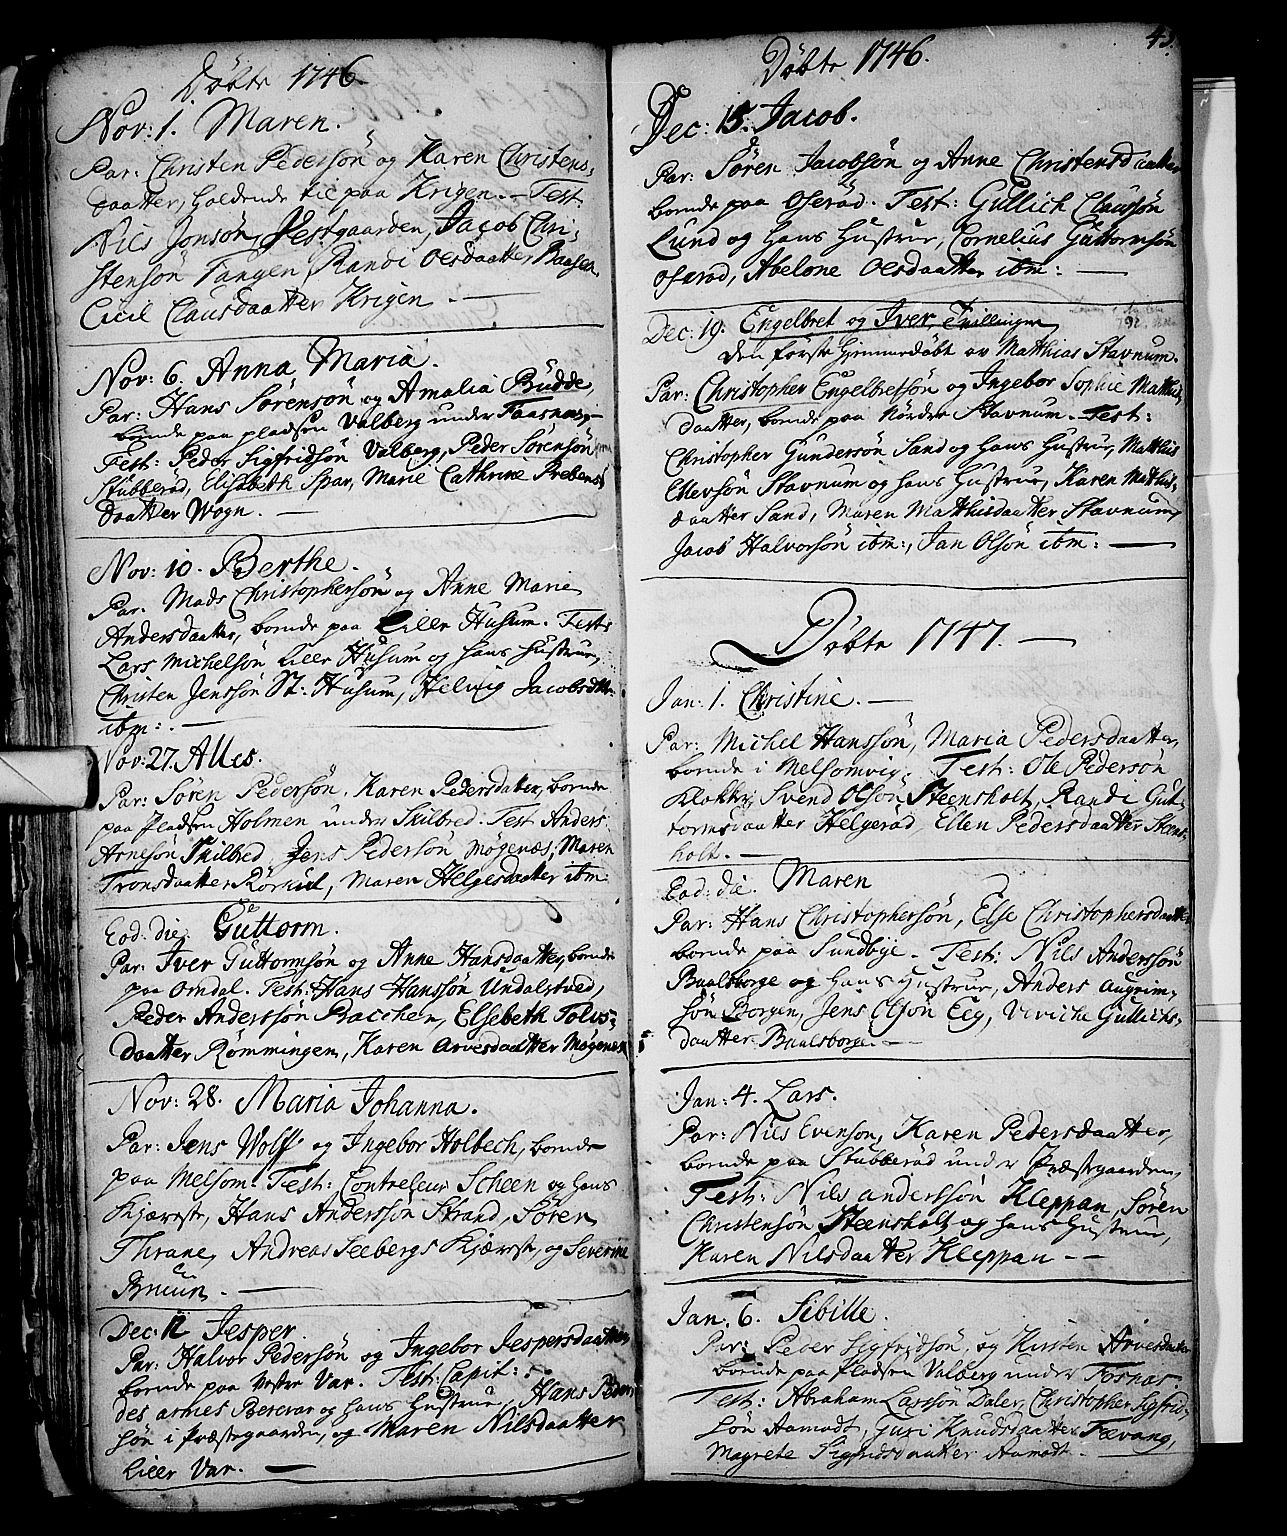 Döbte 1746.
Nov: 1. Maren.
Par: Christen Pedersön og Karen Christens-
daatter, holdende til paa Krigen. - Test
Nils Jonsön Pestgaarden, Jacob Chri-
stensön Tangen, Randi Olsdaatter Baasen
Cicil Clausdaatter Krigen. —
Nov: 6. Anna Maria.
Par: Hans Sörensön og Amalia Budde,
boende paa pladsen Valberg under
Test: Peder Sigfridsön Valberg, Peder Sörensön
Stubberöd, Elisabeth Spar, Marie Cathrine Prebens
daatter Wogn. —
Nov: 10. Berthe.
Par. Mads Christophersön og Anne Marie
Andersdaatter, boende paa Liller Husum. Test:
Lars Michelsön Liller Husum og hans Hustrue,
Christen Jenssön St: Husum, Helvig Jacobsdtter
ibm: —
Nov: 27. Alles.
Par: Sören Pedersön. Karen Pedersdatter, boende
paa Pladsen Holmen under Skilbred. Test Anders
Arnesön Skilbred, Jens Pedersön Mögenæs, Maren
Tronsdaatter, Maren Helgesdaatter ibm
Eod: die Guttorm.
Par: Iver Guttormsön og Anne Hansdaatter, boende
paa Omdal. Test: Hans Hanssön Undalstved,
Peder Anderssön Bacchen, Elsebeth Tolvs-
daatter Römmingen, Karen Arvesdaatter Mögenæs
Nov: 28. Maria Johanna.
Par: Jens Wolff og Ingebor Holbech, boende
paa Melsom. Test: Contreleur Scheen og hans
Kjæreste, Hans Andersson Strand, Sören
Thrane, Andreas Seebergs Kjæreste, og Severine
Bruun. —
Dec: 12 Jesper.
Par: Halvor Pedersön og Ingebor Jespersdaatter
boende paa Vester Var. Test: Capit:
des arnes Berevar og hans Hustrue, Hans Peder-
sön i Præstegaarden, og Maren Nilsdaatter
Liller Var. —
43.
Döbte 1746.
Dec: 15. Jacob.
Par: Sören Jacobsön og Anne Christensdaatter
boende paa Oseröd. Test: Gullich Claussön
Lund og hans Hustrue, Cornelius Guttormsön
Oseröd, Abelone Olsdaatter ibm: —
Dec: 19. Engelbret og Iver, Tvillinger,
Den förste hjemmedöbt av Matthias Stavnum.
Par: Christopher Engelbretsön og Ingebor Sophie Matthis-
daatter, boende paa Nördre Stavnum. Test:
Christopher Gundersön Sand og hans Hustrue, Matthis
Ellevsön Stavnum og hans Hustrue, Karen Mathis-
daatter Sand, Maren Matthisdaatter Stavnum,
Jacob Halvorsön ibm:, Jan Olsön ibm: —
Döbte 1747. —
Jan: 1. Christine. —
Par: Michel Hanssön, Maria Pedersdaatter,
boende i Melsomvig. Test: Ole Pederson
Klokker, Svend Olsön Steensholt, Randi Gut-
tormsdaatter Helgeröd, Ellen Pedersdaatter Steens
holt. —
Eod: die. Maren
Par: Hans Christophersön, Else Christophersdaatter
boende paa Sundbye. Test: Nils Anderssön
Baalsborge og hans Hustrue, Anders Augrim-
sön Borgen, Jens Olsön Eeg, Vivicke Gullichs-
daatter Baalsborge —
Jan: 4. Lars.
Par: Nils Evenson, Karen Pedersdaatter,
boende paa Stubberöd under Præstegaarden,
Test: Nils anderssön Kleppan, Sören
Christensön Steensholt og hans Hustrue,
Karen Nilsdaatter Kleppan — -
Jan: 6. Sibille.
Par: Peder Sigfridsön, og Kirsten Arvesdaatter
boende paa Pladsen Valberg under Fosnæs
Test: Abraham Larssön Daler, Christopher Sigfrid-
sön Aamodt, Guri Knudsdaatter Fævang,
Magrete Sigfridsdaatter Aamodt. —